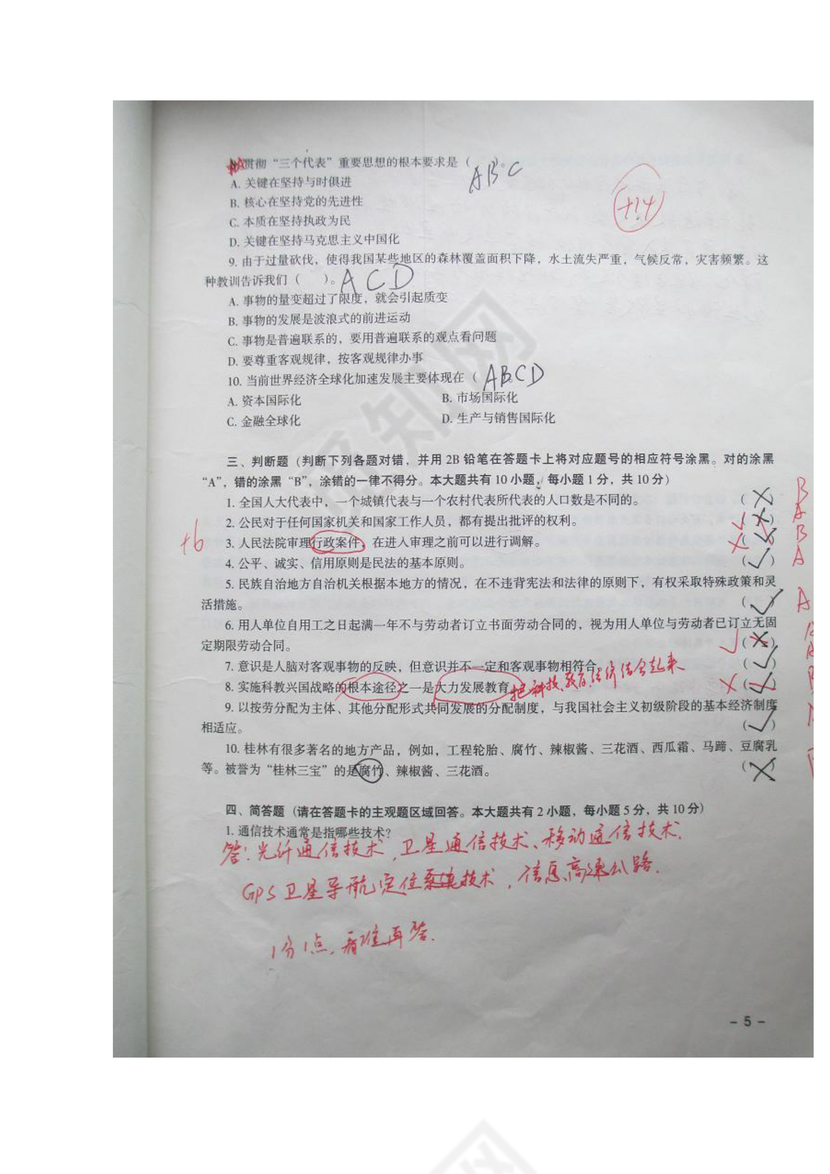 贯彻“三个代表”重要思想的根本要求是（ ABC ）。
A. 关键在坚持与时俱进
B. 核心在坚持党的先进性
C. 本质在坚持执政为民
D. 关键在坚持马克思主义中国化
+14
9. 由于过量砍伐，使得我国某些地区的森林覆盖面积下降，水土流失严重，气候反常，灾害频繁。这
种教训告诉我们（ ）。ACD
A. 事物的量变超过了限度，就会引起质变
B. 事物的发展是波浪式的前进运动
C. 事物是普遍联系的，要用普遍联系的观点看问题
D. 要尊重客观规律，按客观规律办事
10. 当前世界经济全球化加速发展主要体现在（ ABCD
A. 资本国际化 B. 市场国际化
C. 金融全球化 D. 生产与销售国际化
三、判断题（判断下列各题对错，并用 2B 铅笔在答题卡上将对应题号的相应符号涂黑。对的涂黑
“A”，错的涂黑“B”，涂错的一律不得分。本大题共有 10 小题，每小题 1 分，共 10 分）
1. 全国人大代表中，一个城镇代表与一个农村代表所代表的人口数是不同的。 （ × ） B
2. 公民对于任何国家机关和国家工作人员，都有提出批评的权利。 （ × ） A
+6 3. 人民法院审理行政案件，在进入审理之前可以进行调解。 × （ √ ） B
4. 公平、诚实、信用原则是民法的基本原则。 （ √ ） A
5. 民族自治地方自治机关根据本地方的情况，在不违背宪法和法律的原则下，有权采取特殊政策和灵
活措施。 （ √ ） A
6. 用人单位自用工之日起满一年不与劳动者订立书面劳动合同的，视为用人单位与劳动者已订立无固
定期限劳动合同。 √ （ × ）
7. 意识是人脑对客观事物的反映，但意识并不一定和客观事物相符合。 （ √ ）
8. 实施科教兴国战略的根本途径之一是大力发展教育 把科技、教育、经济结合起来 × （ √ ）
9. 以按劳分配为主体、其他分配形式共同发展的分配制度，与我国社会主义初级阶段的基本经济制度
相适应。 （ √ ）
10. 桂林有很多著名的地方产品，例如，工程轮胎、腐竹、辣椒酱、三花酒、西瓜霜、马蹄、豆腐乳
等。被誉为“桂林三宝”的是腐竹、辣椒酱、三花酒。 （ × ）
四、简答题（请在答题卡的主观题区域回答。本大题共有 2 小题，每小题 5 分，共 10 分）
1. 通信技术通常是指哪些技术？
答：光纤通信技术、卫星通信技术、移动通信技术.
GPS卫星导航定位技术，信息高速公路.
1分1点，看准再答.
- 5 -